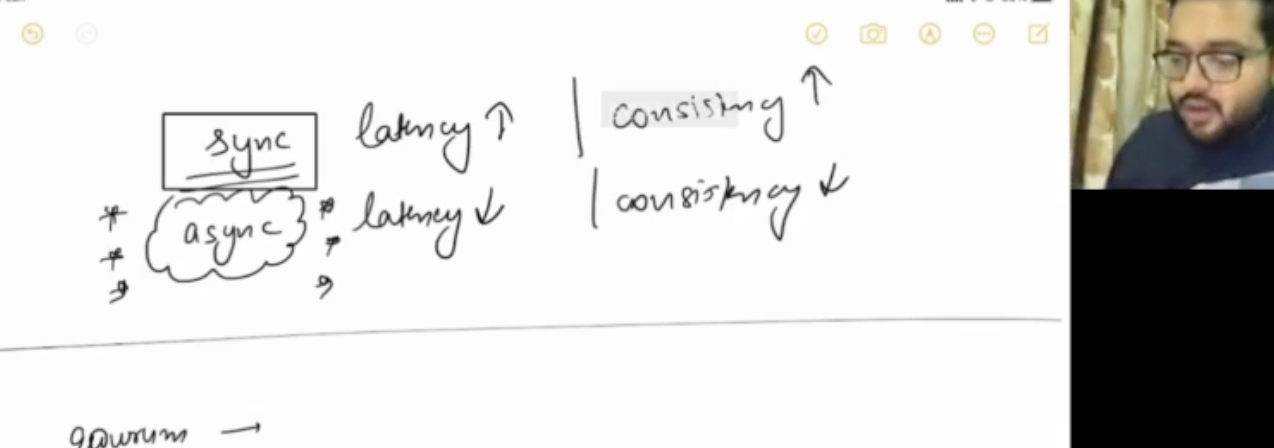 sync latency ↑ | consistency ↑
async latency ↓ | consistency ↓
quorum →